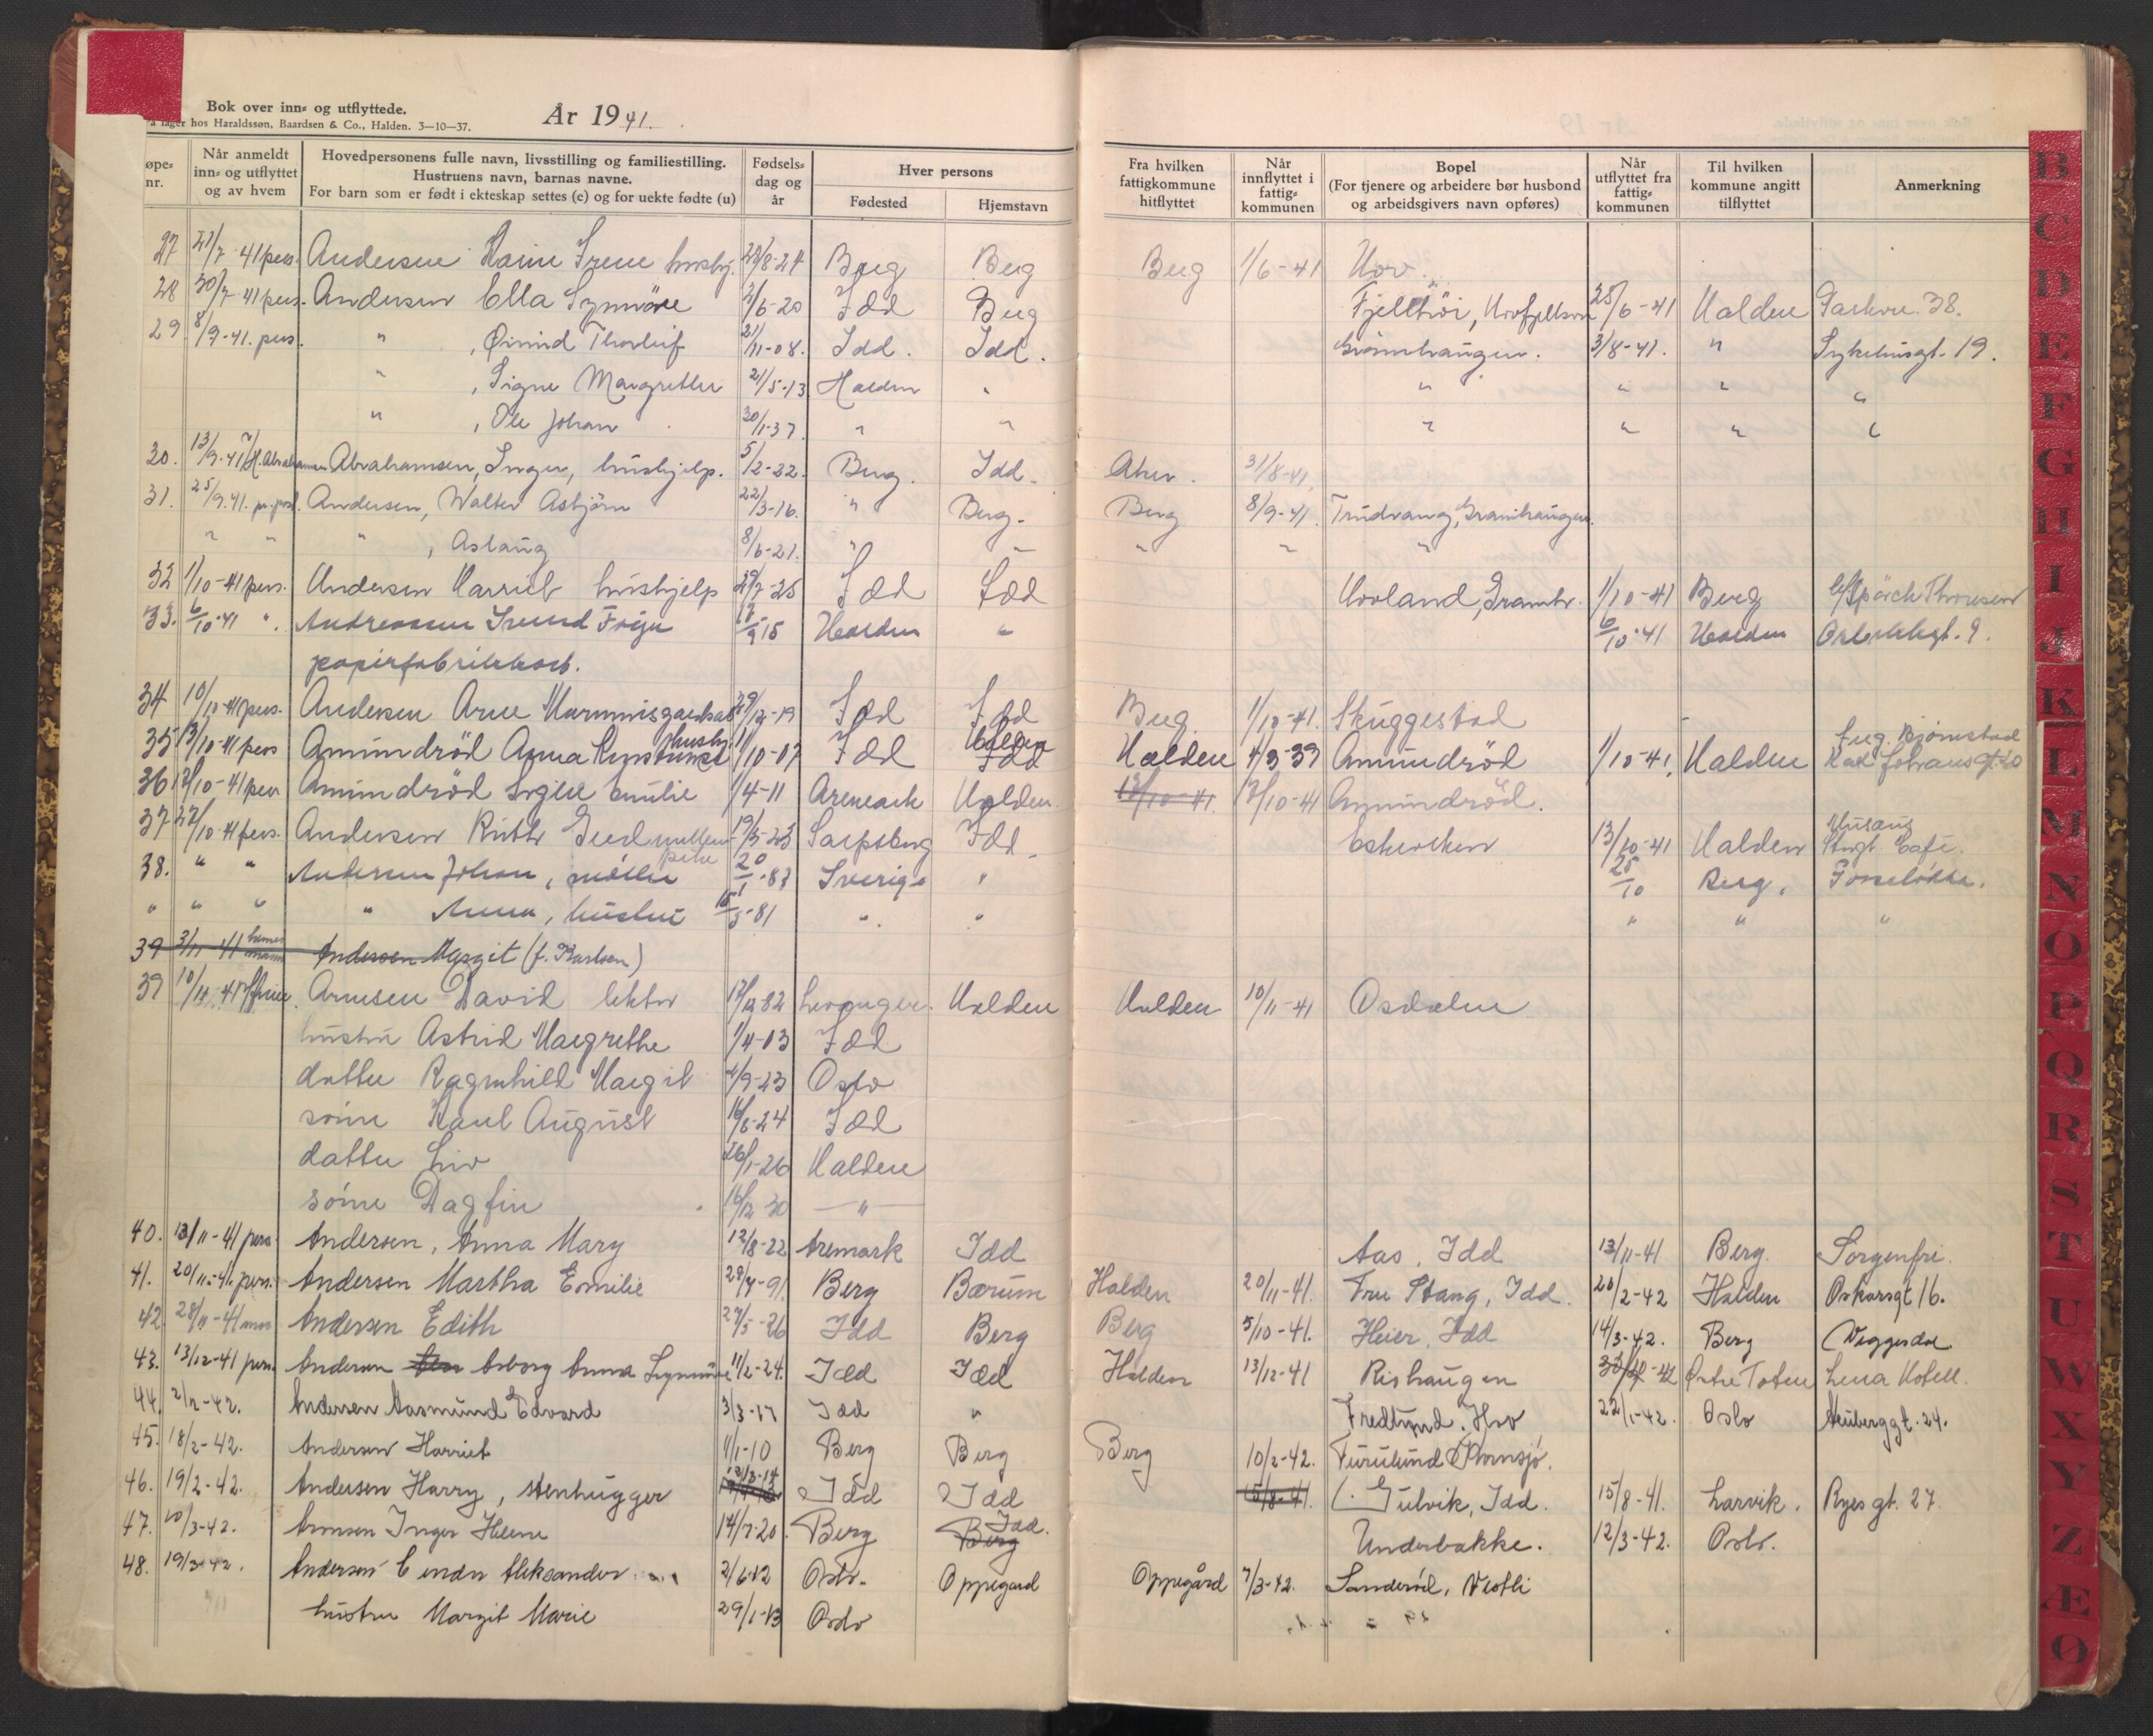 Bok over inn- og utflyttede.
På lager hos Haraldssøn, Baardsen & Co., Halden. 3—10—37.
År 1941.
øpe-nr. Når anmeldt inn- og utflyttet og av hvem Hovedpersonens fulle navn, livsstilling og familiestilling. Hustruens navn, barnas navne. For barn som er født i ekteskap settes (e) og for uekte fødte (u) Fødsels-dag og år Hver persons Fødested Hjemstavn Fra hvilken fattigkommune hitflyttet Når innflyttet i fattig-kommunen Bopel (For tjenere og arbeidere bør husbond og arbeidsgivers navn opføres) Når utflyttet fra fattig-kommunen Til hvilken kommune angitt tilflyttet Anmerkning
27 21/7-41 pers. Andersen Karin Irene hushj. 22/8-24 Berg Berg Berg 1/6-41 Hov.
28 30/7-41 pers. Andersen Ella Synnöve 2/6-20 Idd Berg 25/6-41 Halden 38.
29 8/9-41. pers. " , Øivind Thorleif 21/11-08. Idd. Idd. Grönnhaugen. 3/8-41. " Sykehusgt. 19.
" , Signe Margrethe 21/5-13 Halden " " " " "
" , Ole Johan 30/1-37 " " " " " "
30. 13/9-41 H. Abrahamsen Abrahamsen, Inger, hushjelp. 5/2-22. Berg. Idd. 31/8-41.
31. 25/9.41. pr. post. Andersen, Walter Asbjörn 22/3-16. " Berg. Berg 8/9-41. Trudvang,
" " " , Aslaug 8/6-21. " " " " "
32 1/10-41 pers. Andersen Harriet hushjelp 29/7-25 Idd Idd Hovland, 1/10-41 Berg
33. 6/10-41 ". Andreassen 15 Halden " 6/10-41 Halden
papirfabrikkarb.
34 10/10-41 pers. Andersen Arne 29/12-19 Idd Idd Berg 1/10-41. Skuggestad
35 13/10-41 pers Amundröd Anna hushj. 11/10-07 Idd Halden Idd Halden 4/3-39 Amundröd 1/10-41. Halden Bjørnstad Karl Johansgt
36 12/10-41 pers Amundröd Emilie 1/4-11 Aremark Halden 12/10-41 12/10-41 Amundröd.
37 22/10-41 pers. Andersen Ruth 19/5-23 Sarpsborg Idd 13/10-41 Halden Café.
38. " " Andersen Johan, 20/1-83 Sverige " 25/10 Berg.
" " " " Anna, hustru 15/5-81 " " " " "
39 3/11 41 Andersen Margit (f. Karlsen)
39 10/11-41 Arnesen David lektor 17/12 82 Levanger. Halden Halden 10/11-41 Osdalen
hustru Astrid Margrethe 1/4-03 Idd
datter Ragnhild Margit 4/9-23 Oslo
sönn Karl August 16/8-24 Idd
datter Liv 26/1-26 Halden
sönn Dagfin 16/12 30 "
40. 13/11-41 pers. Andersen, Anna Mary 12/8-22 Aremark Idd Aas, Idd 13/11-41 Berg. Sorgenfri.
41. 20/11-41 pers. Andersen Martha Emilie 28/4-91. Berg Bærum Halden 20/11-41. Fru Stang, Idd. 20/2-42 Halden Oskarsgt 16.
42 28/11-41 Andersen Edith 27/5-26 Idd Berg Berg 5/10-41. Heier, Idd 14/3-42. Berg Veggesdal
43. 13/12-41 pers. Andersen Asborg Anna Synnöve 11/2-24. Idd Idd Halden 13/12-41 Rishaugen Østre Toten Lena Hotell.
44. 2/2-42. Andersen Aasmund Edvard 3/3-17 Idd " Fredlund, Hov 22/1-42. Oslo Neuberggt. 24.
45. 18/2-42. Andersen Harriet 11/1-10 Berg Berg Berg 10/2-42. Furulund Kornsjö.
46. 19/2-42. Andersen Harry, stenhugger Idd Idd 15/8-41. Gulvik, Idd. 15/8-41. Larvik. Ryesgt. 27.
47. 10/3-42. Aronsen Inger Helene 14/7-20. Berg Berg Idd. Underbakke. 12/3-42. Oslo.
48. 19/3-42. Andersen Aleksander 2/6-12 Oslo. Oppegård Oppegård 7/3-42. Sanderöd,
hustru Margit Marie 29/1-13 Oslo
B
C
D
E
F
G
H
I
J
K
L
M
N
O
P
Q
R
S
T
U
W
X
Y
Z
Æ
Ø